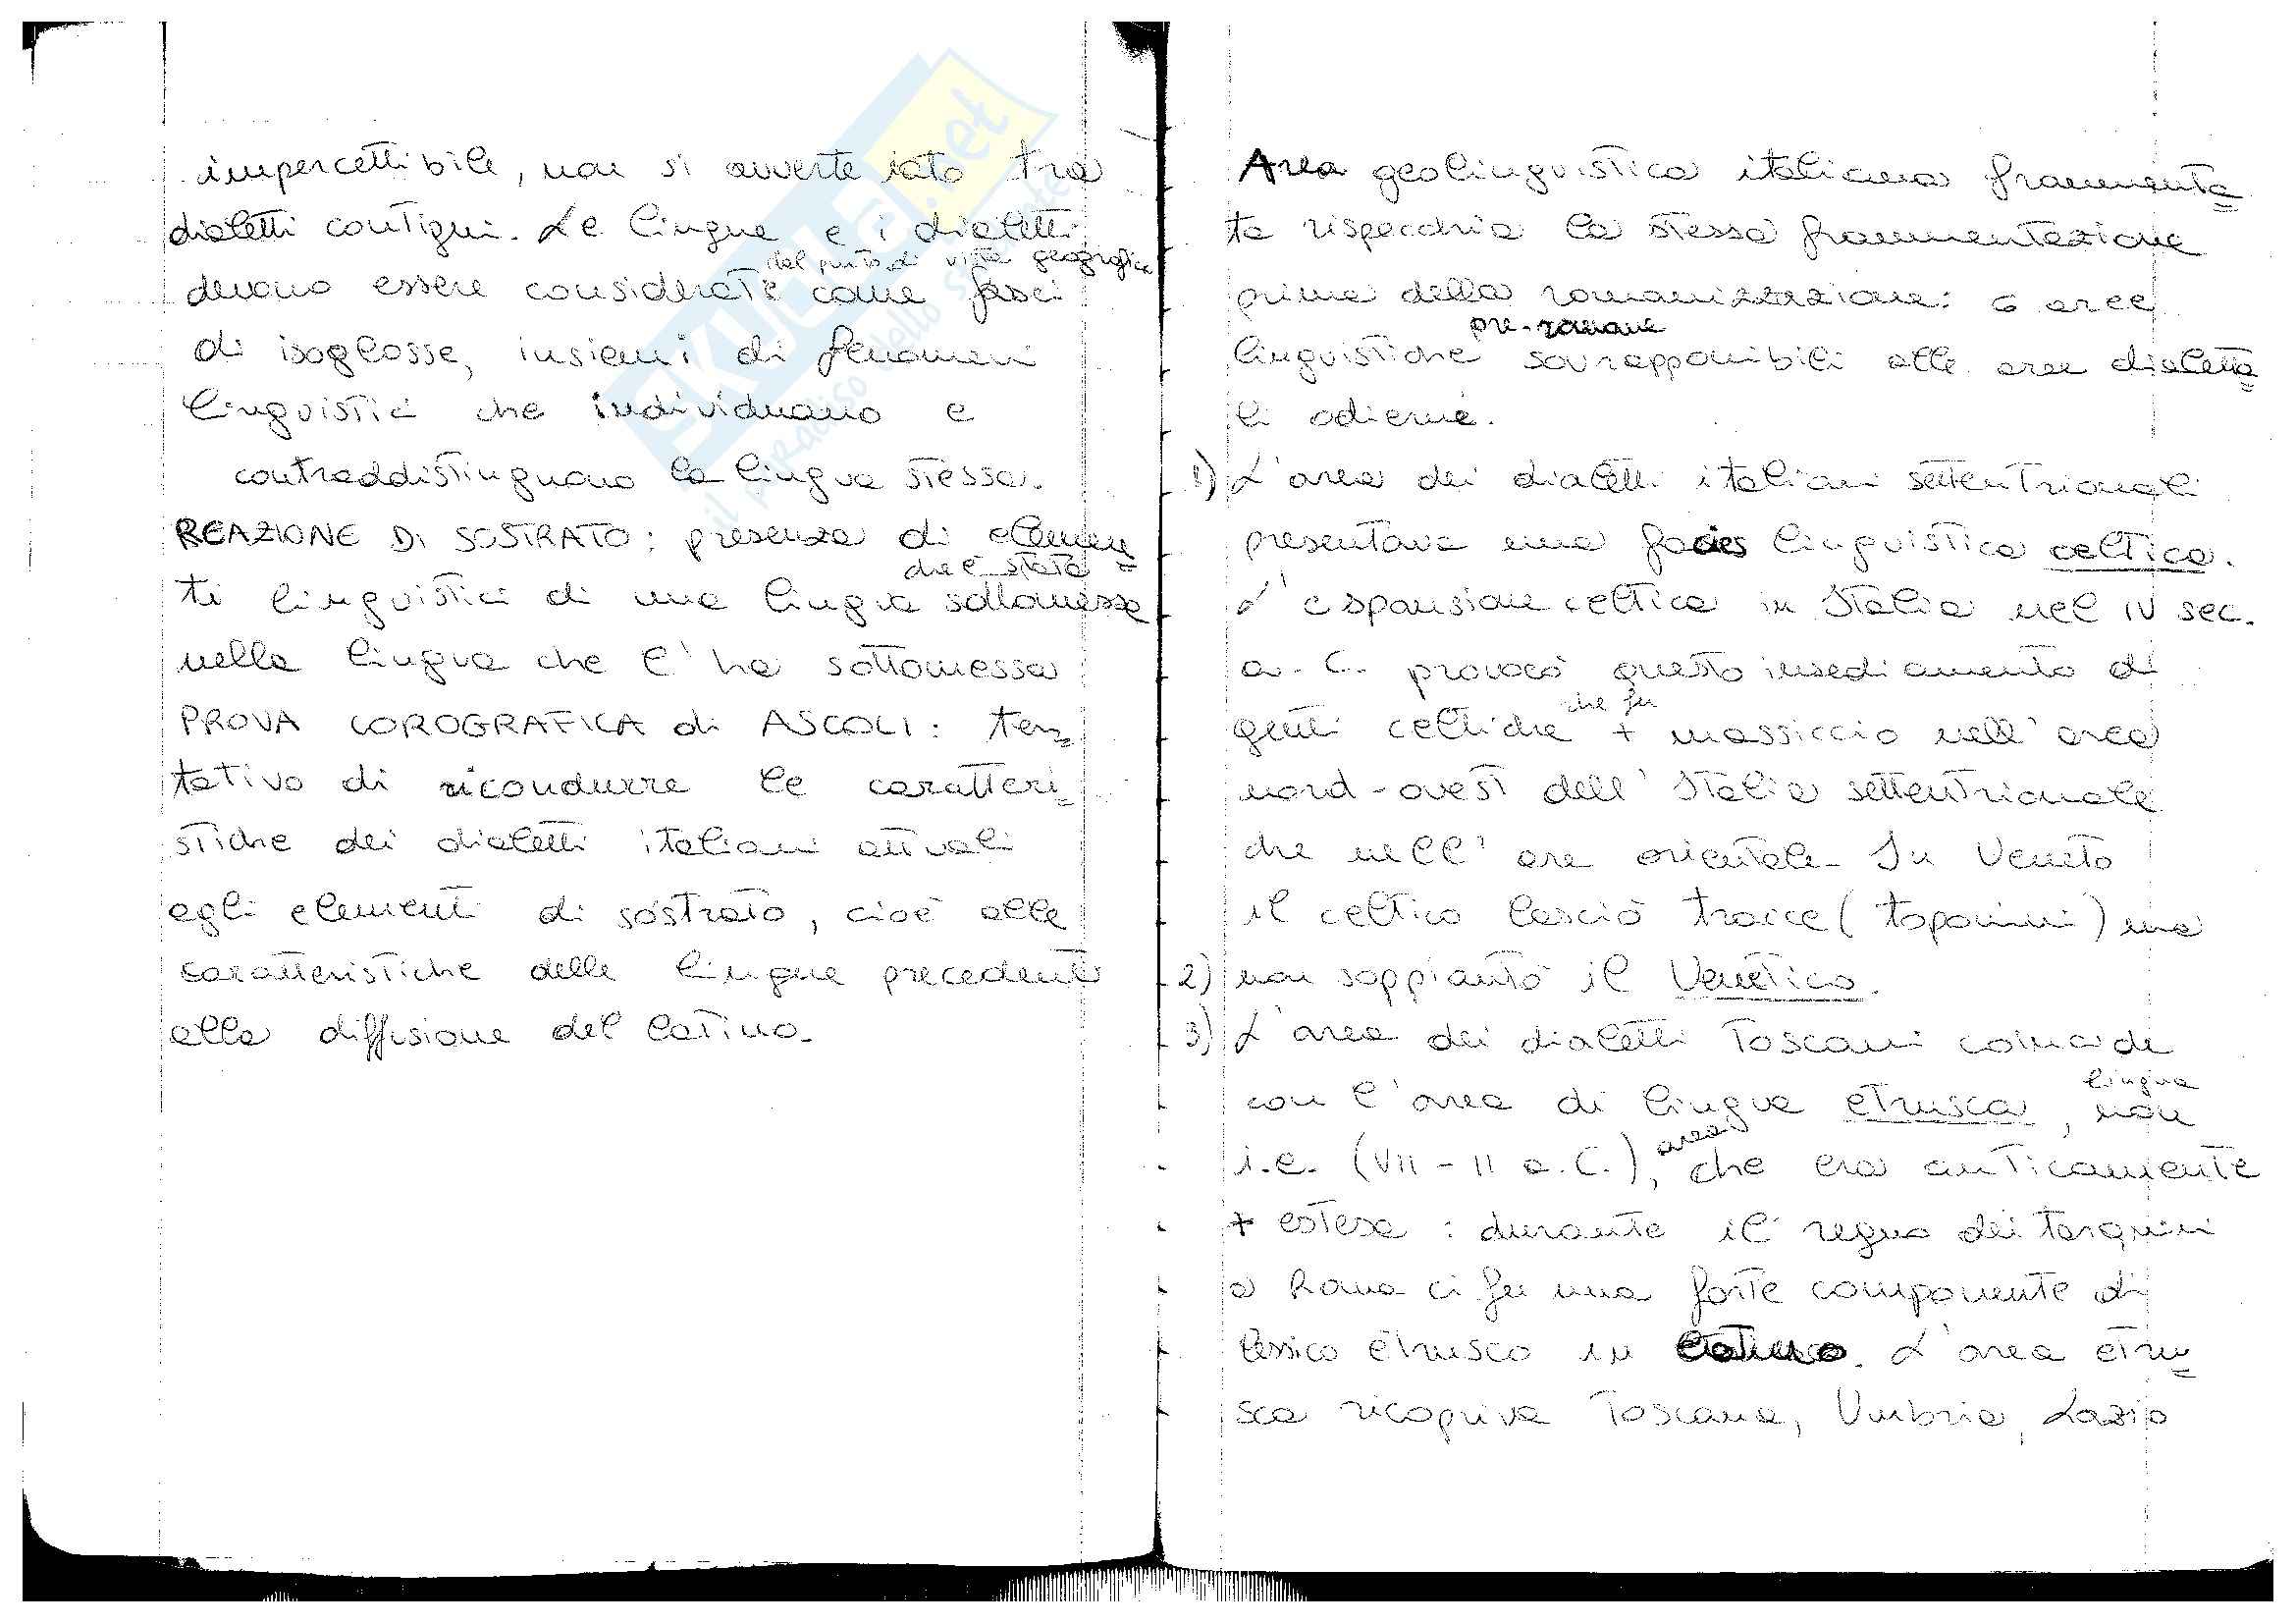 impercettibile, non si avverte iato tra
dialetti contigui. Le lingue e i dialetti
dal punto di vista geografico
devono essere considerati come fasci
di isoglosse, insiemi di fenomeni
linguistici che individuano e
contraddistinguono la lingua stessa.
REAZIONE DI SOSTRATO: presenza di elemen=
che è stata
ti linguistici di una lingua sottomessa
nella lingua che l'ha sottomessa
PROVA COROGRAFICA di ASCOLI: ten=
tativo di ricondurre le caratteri=
stiche dei dialetti italiani attuali
agli elementi di sostrato, cioè alle
caratteristiche delle lingue precedenti
alla diffusione del latino.
Area geolinguistica italiana frammenta=
ta rispecchia la stessa frammentazione
prima della romanizzazione: 6 aree
pre-romane
linguistiche sovrapponibili alle aree dialetta=
li odierne.
1) L'area dei dialetti italiani settentrionali
presentava una facies linguistica celtica.
L'espansione celtica in Italia nel IV sec.
a.C. provocò questo insediamento di
che fu
genti celtiche + massiccio nell'area
nord-ovest dell'Italia settentrionale
che nell'are orientale. In Veneto
il celtico lasciò tracce (toponimi) ma
2) non soppiantò il Venetico.
3) L'area dei dialetti Toscani coincide
lingua
con l'area di lingua etrusca, non
area
i.e. (VII - II a.C.), che era anticamente
+ estesa: durante il regno dei tarquini
a Roma ci fu una forte componente di
lessico etrusco in latino. L'area etru=
sca ricopriva Toscana, Umbria, Lazio
SKUOLA.net
il paRADISO dello studente